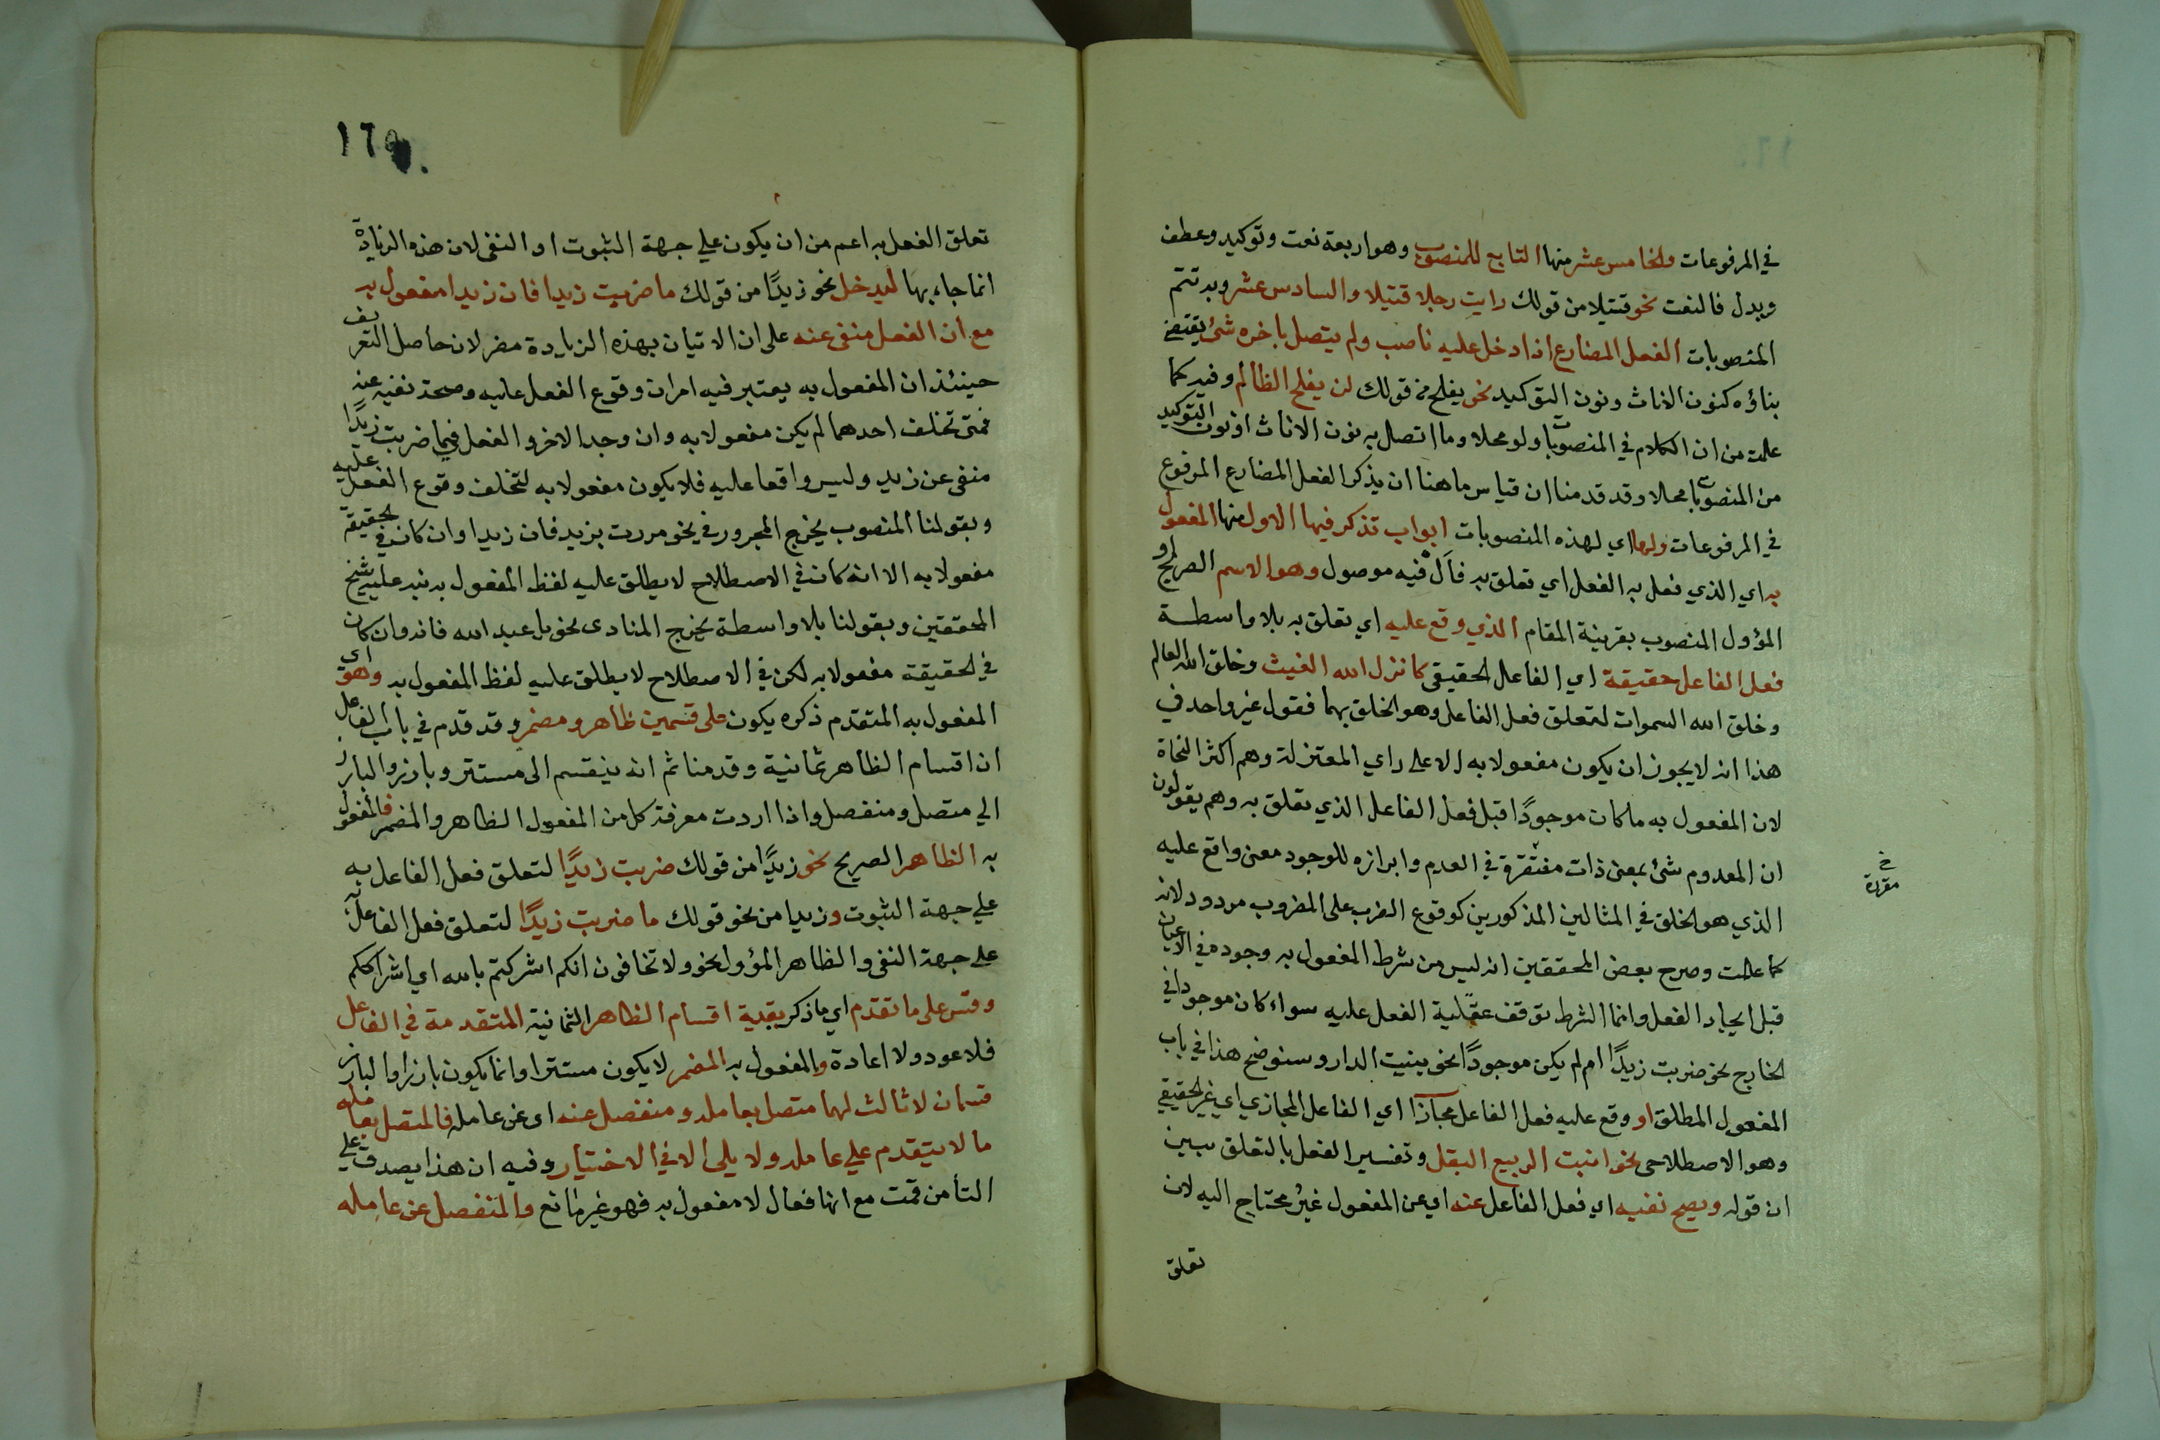 في المرفوعات والخامس عشر منها التابع للمنصوب وهو اربعة نعت وتوكيد وعطف
وبدل فالنعت نحو قتيلا من قولك رايت رجلا قتيلا والسادس عشر وبه تتم
المنصوبات الفعل المضارع اذا دخل عليه ناصب ولم يتصل باخره شئ يقتضى
بناؤه كنون الاناث ونون التوكيد نحو يفلح من قولك لن يفلح الظالم وفيه كما
علمت من ان الكلام في المنصوبات ولو محلا وما اتصل به نون الاناث او نون التوكيد
من المنصوبات محلا وقد قدمنا ان قياس ما هنا ان يذكر الفعل المضارع المرفوع
في المرفوعات ولها اي لهذه المنصوبات ابواب تذكر فيها الاول منها المفعول
به اي الذي فعل به الفعل اي تعلق به فأل فيه موصول وهو الاسم الصريح او
المؤول المنصوب بقرينة المقام الذي وقع عليه اي تعلق به بلا واسطة
فعل الفاعل حقيقة اي الفاعل الحقيقي كانزل الله الغيث وخلق الله العالم
وخلق الله السموات لتعلق فعل الفاعل وهو الخلق بهما فقول غير واحد في
هذا انه لا يجوز ان يكون مفعولا به الا على راي المعتزلة وهم اكثر النحاة
لان المفعول به ما كان موجودًا قبل فعل الفاعل الذي تعلق به وهم يقولون
ان المعدوم شئ بمعنى ذات متقررة في العدم وابرازه للوجود معنى واقع عليه
خ
مقررة
الذي هو الخلق في المثالين المذكورين كوقوع الضرب على المضروب مردود لانه
كما علمت وصرح بعض المحققين انه ليس من شرط المفعول به وجوده في الاعيان
قبل ايجاد الفعل وانما الشرط توقف عقلية الفعل عليه سواء كان موجودا في
الخارج نحو ضربت زيدًا ام لم يكن موجودًا نحو بنيت الدار وسنوضح هذا في باب
المفعول المطلق او وقع عليه فعل الفاعل مجازًا اي الفاعل المجازي اي غير الحقيقي
وهو الاصطلاحى نحو انبت الربيع البقل وتفسير الفعل بالتعلق يبين
ان قوله ويصح نفيه اي فعل الفاعل عنه اي عن المفعول غير محتاج اليه لان
تعلق
١٦٥
تعلق الفعل به اعم من ان يكون على جهة الثبوت او النفى لان هذه الزيادة
انما جاء بها ليدخل نحو زيدًا من قولك ما ضربت زيدا فان زيدا مفعول به
مع ان الفعل منفى عنه على ان الاتيان بهذه الزيادة مضر لان حاصل التعريف
حينئذ ان المفعول به يعتبر فيه امران وقوع الفعل عليه وصحة نفيه عنه
فمتى تخلف احدهما لم يكن مفعولا به وان وجد الاخر والفعل في ما ضربت زيدًا
منفى عن زيد وليس واقعا عليه فلا يكون مفعولا به لتخلف وقوع الفعل عليه
وبقولنا المنصوب يخرج المجرور في نحو مررت بزيد فان زيدا وان كان في الحقيقة
مفعولا به الا انه كان في الاصطلاح لا يطلق عليه لفظ المفعول به نبه عليه شيخ
المحققين وبقولنا بلا واسطة يخرج المنادى نحو يا عبد الله فانه وان كان
في الحقيقة مفعولا به لكن في الاصطلاح لا يطلق عليه لفظ المفعول به وهو اي
المفعول به المتقدم ذكره يكون على قسمين ظاهر ومضمر وقد قدم في باب الفاعل
ان اقسام الظاهر ثمانية وقدمنا ثم انه ينقسم الى مستتر وبارز والبارز
الي متصل ومنفصل واذا اردت معرفة كل من المفعول الظاهر والمضمر فالمفعول
به الظاهر الصريح نحو زيدًا من قولك ضربت زيدًا لتعلق فعل الفاعل به
على جهة الثبوت وزيدا من نحو قولك ما ضربت زيدًا لتعلق فعل الفاعل به
على جهة النفى والظاهر المؤول نحو ولا تخافون انكم اشركتم بالله اي اشراككم
وقس على ما تقدم اي ما ذكر بقية اقسام الظاهر الثمانية المتقدمة في الفاعل
فلا عود ولا اعادة والمفعول به المضمر لا يكون مستترا وانما يكون بارزا والبارز
قسمان لا ثالث لهما متصل بعامله ومنفصل عنه اى عن عامله فالمتصل بعامله
ما لا يتقدم علي عامله ولا يلى الا في الاختيار وفيه ان هذا يصدق على
التأ من قمت مع انها فعال لا مفعول به فهو غير مانع والمنفصل عن عامله